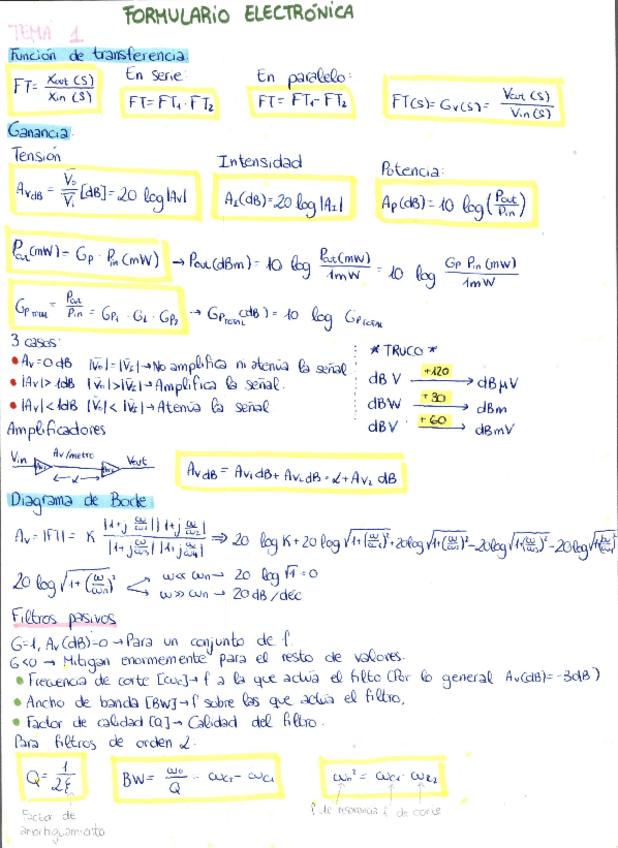 FORMULARIO ELECTRÓNICA
TEMA 1
Función de transferencia:
FT = Xout (S) / Xin (S)
En serie:
FT = FT1 · FT2
En paralelo:
FT = FT1 - FT2
FT(S) = Gv(S) = Vout (S) / Vin (S)
Ganancia:
Tensión
AvdB = V̄o / V̄i [dB] = 20 log |Av|
Intensidad
AI(dB) = 20 log |AI|
Potencia:
Ap(dB) = 10 log (Pout / Pin)
Pout(mW) = Gp · Pin (mW) → Pout(dBm) = 10 log Pout(mW) / 1mW = 10 log Gp Pin (mW) / 1mW
Gp TOTAL = Pout / Pin = Gp1 · GL · Gp2 → Gp TOTAL (dB) = 10 log Gp TOTAL
3 casos:
• Av = 0 dB |V̄o| = |V̄I| → No amplifica ni atenúa la señal
• |Av| > 1dB |V̄o| > |V̄I| → Amplifica la señal.
• |Av| < 1dB |V̄o| < |V̄I| → Atenúa la señal
* TRUCO *
dBV +120 → dBμV
dBW +30 → dBm
dBV +60 → dBmV
Amplificadores
Vin Av/metro Vout
← L →
AvdB = Av1 dB + AvL dB · L + Av2 dB
Diagrama de Bode
Av = |FT| = K |1+j ω/ω1| |1+j ω/ω2| / |1+j ω/ω3| |1+j ω/ω4| ⇒ 20 log K + 20 log √1+(ω/ω1)² + 20log √1+(ω/ω2)² - 20log √1+(ω/ω3)² - 20log √1+(ω/ω4)²
20 log √1+(ω/ωn)²
ω << ωn → 20 log √1 = 0
ω >> ωn → 20 dB/déc
Filtros pasivos
G=1, Av(dB)=0 → Para un conjunto de f.
G<0 → Mitigan enormemente para el resto de valores.
• Frecuencia de corte [ωc] → f a la que actúa el filto (Por lo general Av(dB) = -3dB)
• Ancho de banda [BW] → f sobre las que actúa el filtro.
• Factor de calidad [Q] → Calidad del filtro.
Para filtros de orden 2:
Q = 1 / 2ξ
BW = ωo / Q = ωc1 - ωc2
ωn² = ωc1 · ωc2
Factor de amortiguamiento
f de resonancia
f de corte